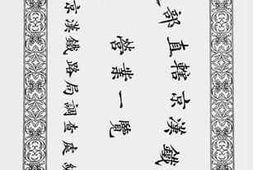 部直轄京漢鐵
營業一覽
京漢鐵路局調查處